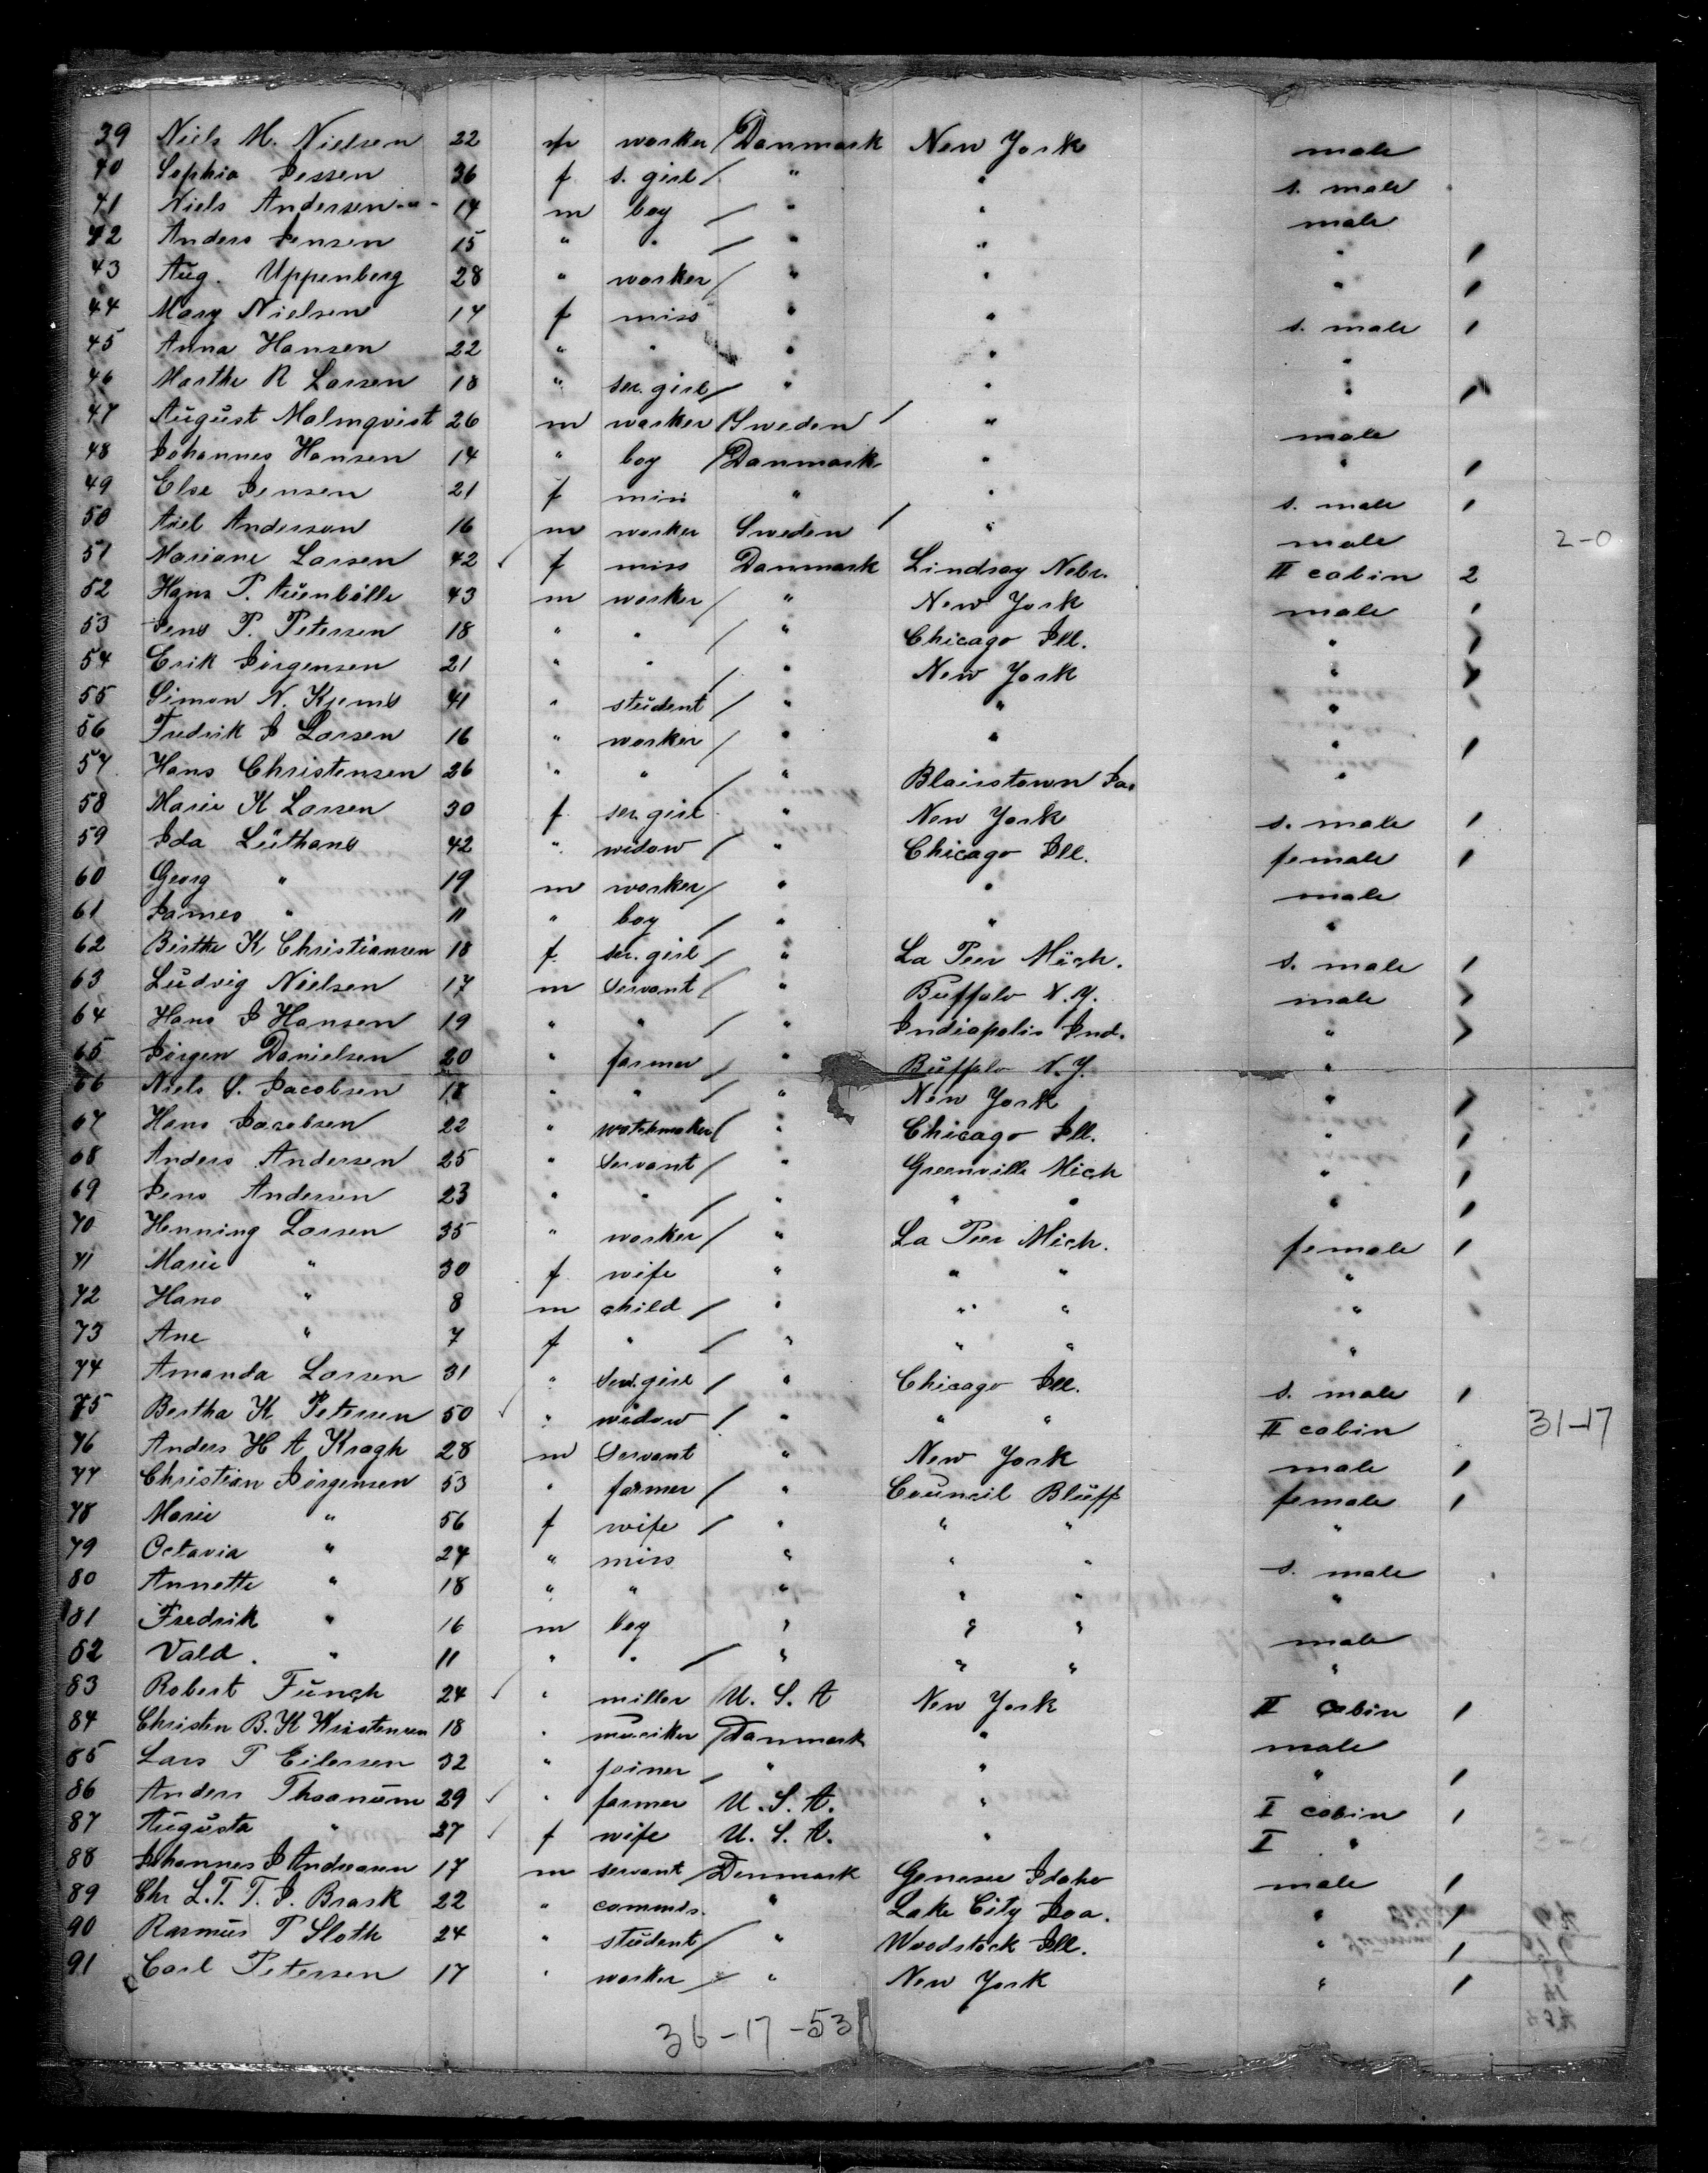 39 Niels M. Nielsen 22 m worker / Danmark New York male
40 Sophia Jessen 36 f s. girl / " " s. male
41 Niels Andersen 14 m boy / " " male
42 Anders Jensen 15 " " / " " " 1
43 Aug. Uppenberg 28 " worker / " " " 1
44 Mary Nielsen 17 f miss " " s. male 1
45 Anna Hansen 22 " " " " "
46 Marthe R Larsen 18 " ser. girl / " " " 1
47 August Malmqvist 26 m worker / Sweden / " male
48 Johannes Hansen 14 " boy / Danmark " " 1
49 Else Jensen 21 f miss " " s. male 1
50 Axel Anderson 16 m worker Sweden / " male 2-0
51 Mariane Larsen 42 ✓ f miss Danmark Lindsay Nebr. II cabin 2
52 Hans P. 43 m worker / " New York male 1
53 Jens P. Petersen 18 " " / " Chicago Ill. " 1
54 Erik Jörgensen 21 " " / " New York " 1
55 Simon N. Kjems 41 " student / " " " 1
56 Fredrik J Larsen 16 " worker / " " " 1
57 Hans Christensen 26 " " / " Blairstown Ioa. "
58 Marie K Larsen 30 f ser. girl " New York s. male 1
59 Ida Lüthans 42 " widow / " Chicago Ill. female 1
60 Georg " 19 m worker / " " male
61 James " 11 " boy / " " "
62 Birthe K Christiansen 18 f ser. girl / " La Peer Mich. s. male 1
63 Ludvig Nielsen 17 m Servant / " Buffalo N.Y. male 1
64 Hans J Hansen 19 " " / " Indiapolis Ind. " 1
65 Jörgen Danielsen 20 " farmer / " Buffalo N.Y. "
66 Niels S. Jacobsen 18 " " / " New York " 1
67 Hans Jacobsen 22 " watchmaker / " Chicago Ill. " 1
68 Anders Andersen 25 " Servant / " Greenville Mich " 1
69 Jens Andersen 23 " " / " " " " 1
70 Henning Larsen 35 " worker / " La Peer Mich. female 1
71 Marie " 30 f wife " " " "
72 Hans " 8 m child / " " " "
73 Ane " 7 f " / " " " "
74 Amanda Larsen 31 " Serv. girl / " Chicago Ill. s. male 1
75 Bertha K Petersen 50 ✓ " widow / " " " II cabin 31-17
76 Anders H A Kragh 28 m Servant " New York male 1
77 Christian Jörgensen 53 " farmer / " Council Bluff female 1
78 Marie " 56 f wife / " " " "
79 Octavia " 24 " miss " " " s. male
80 Annette " 18 " " " " " "
81 Fredrik " 16 m boy " " " male
82 Vald. " 11 " " / " " " "
83 Robert Funch 24 ✓ " miller / U. S. A New York II cabin 1
84 Christen B. K 18 " musiker / Danmark " male
85 Lars P Eilersen 32 " joiner / " " " 1
86 Anders Thaanum 29 ✓ " farmer U. S. A. " I cabin 1
87 Augusta " 27 ✓ f wife U. S. A. " I "
88 Johannes J Andreasen 17 m servant / Denmark Genesee Idaho male 1
89 Chr L. T. T. J. Brask 22 " commis. " Lake City Ioa. " 1
90 Rasmus P Sloth 24 " student / " Woodstock Ill. " 1
91 Carl Petersen 17 " worker / " New York " 1
36-17-53